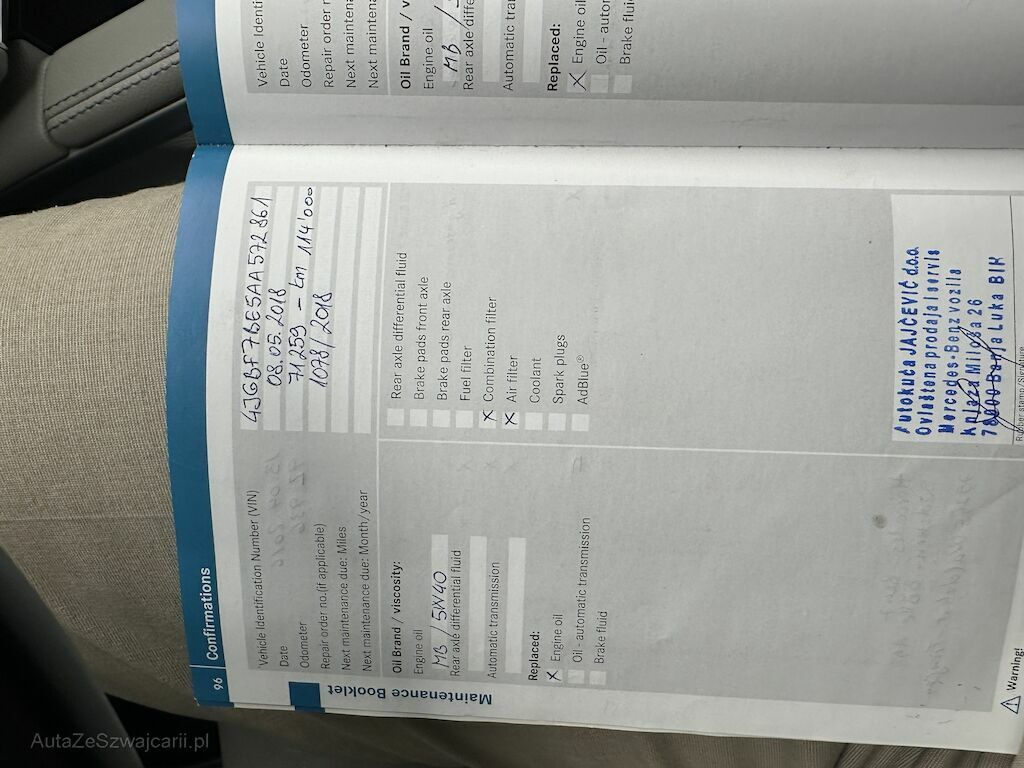 96 Confirmations
Vehicle Identification Number (VIN) 4JGBF7BE5AA572861
Date 08.05.2018
Odometer 71259 - km 114'000
Repair order no.(if applicable) 1078/2018
Next maintenance due: Miles
Next maintenance due: Month/year
Oil Brand / viscosity:
Engine oil
MB / 5W40
Rear axle differential fluid
Automatic transmission
Replaced:
X Engine oil
Oil - automatic transmission
Brake fluid
Rear axle differential fluid
Brake pads front axle
Brake pads rear axle
Fuel filter
X Combination filter
X Air filter
Coolant
Spark plugs
AdBlue®
Autokuća JAJČEVIĆ d.o.o.
Ovlaštena prodaja i servis
Mercedes-Benz vozila
Knjaza Miloša 26
78000 Banja Luka BIH
Rubber stamp/Signature
Warning!
Maintenance Booklet
Vehicle Identi
Date
Odometer
Repair order n
Next maintena
Next maintena
Oil Brand / v
Engine oil
MB /
Rear axle diffe
Automatic tran
Replaced:
X Engine oil
Oil - autom
Brake fluid
AutaZeSzwajcarii.pl